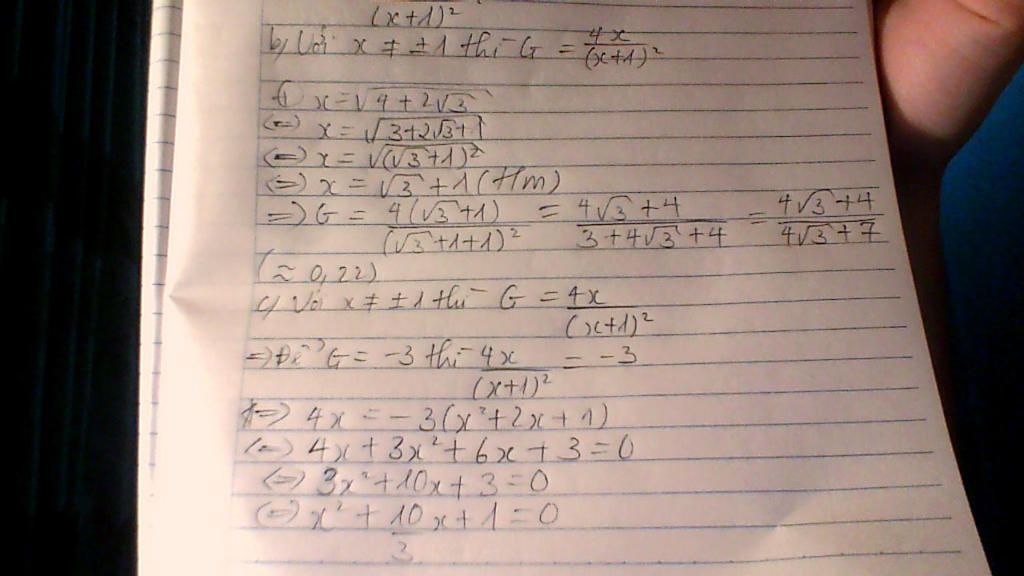 (x+1)²
b) Với x ≠ ±1 thì G = 4x/(x+1)²
x = √(4+2√3)
(=) x = √(3+2√3+1)
(=) x = √((√3+1)²)
(=) x = √3 + 1 (tm)
=) G = 4(√3+1)/(√3+1+1)² = (4√3+4)/(3+4√3+4) = (4√3+4)/(4√3+7)
(≈ 0,22)
c) Với x ≠ ±1 thì G = 4x/(x+1)²
=) Để G = -3 thì 4x/(x+1)² = -3
=) 4x = -3(x²+2x+1)
(=) 4x + 3x² + 6x + 3 = 0
(=) 3x² + 10x + 3 = 0
(=) x² + 10/3 x + 1 = 0